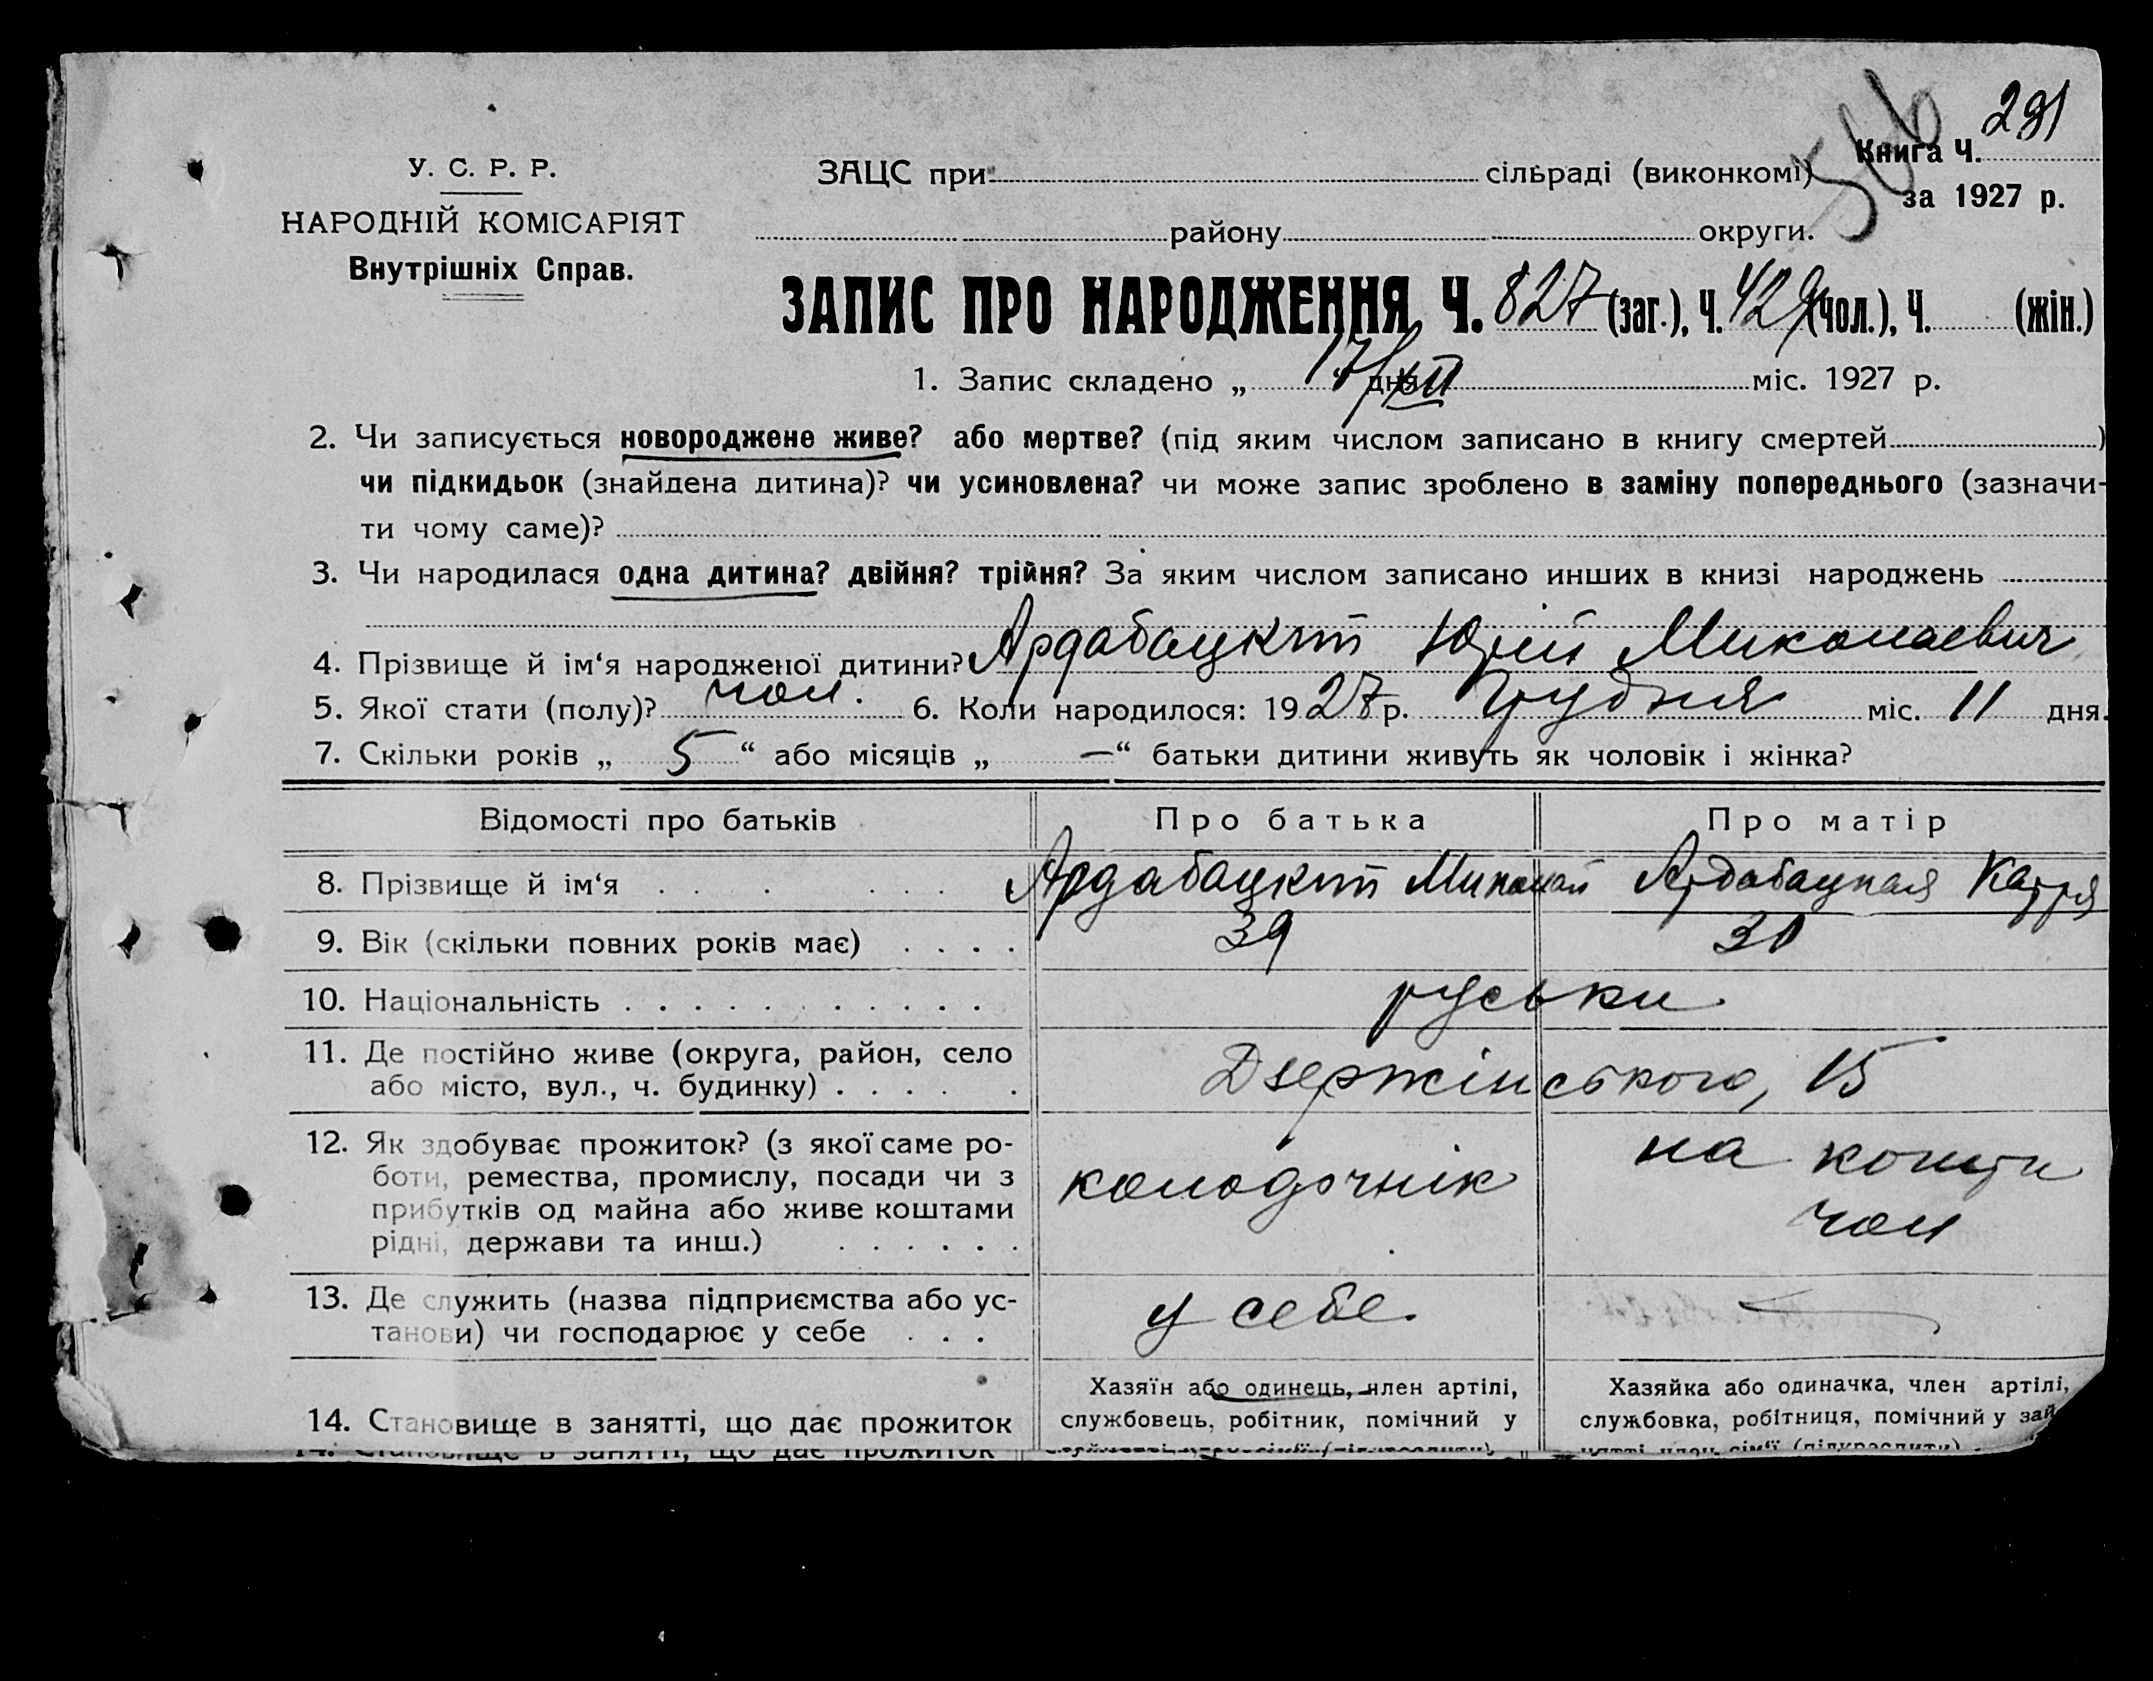 291
566
У. С. Р. Р.
НАРОДНІЙ КОМІСАРІЯТ
Внутрішніх Справ.
ЗАЦС при сільраді (виконкомі)
Книга Ч.
за 1927 р.
району округи.
ЗАПИС ПРО НАРОДЖЕННЯ Ч. 827 (заг.), Ч. 429 (чол.), Ч. (жін.)
1. Запис складено „ 17/XII “ дня міс. 1927 р.
2. Чи записується новороджене живе? або мертве? (під яким числом записано в книгу смертей )
чи підкидьок (знайдена дитина)? чи усиновлена? чи може запис зроблено в заміну попереднього (зазначи-
ти чому саме)?
3. Чи народилася одна дитина? двійня? трійня? За яким числом записано инших в книзі народжень
4. Прізвище й ім‘я народженої дитини? Ардабацкий Юрій Миколаевич
5. Якої стати (полу)? чол. 6. Коли народилося: 1927 р. Грудня міс. 11 дня.
7. Скільки років „ 5 “ або місяців „ — “ батьки дитини живуть як чоловік і жінка?
Відомості про батьків Про батька Про матір
8. Прізвище й ім‘я . . . . . . Ардабацкий Миколай Ардабацкая
9. Вік (скільки повних років має) . . . . 39 30
10. Національність . . . . . . . . . . руськи
11. Де постійно живе (округа, район, село
або місто, вул., ч. будинку) . . . . . Дзержінського, 15
12. Як здобуває прожиток? (з якої саме ро-
боти, ремества, промислу, посади чи з
прибутків од майна або живе коштами
рідні, держави та инш.) . . . . . .
колодочнік
на кошти
чол
13. Де служить (назва підприємства або ус-
танови) чи господарює у себе . . .
у себе
—
14. Становище в занятті, що дає прожиток
Хазяїн або одинець, член артілі,
службовець, робітник, помічний у
Хазяйка або одиначка, член артілі,
службовка, робітниця, помічний у зай